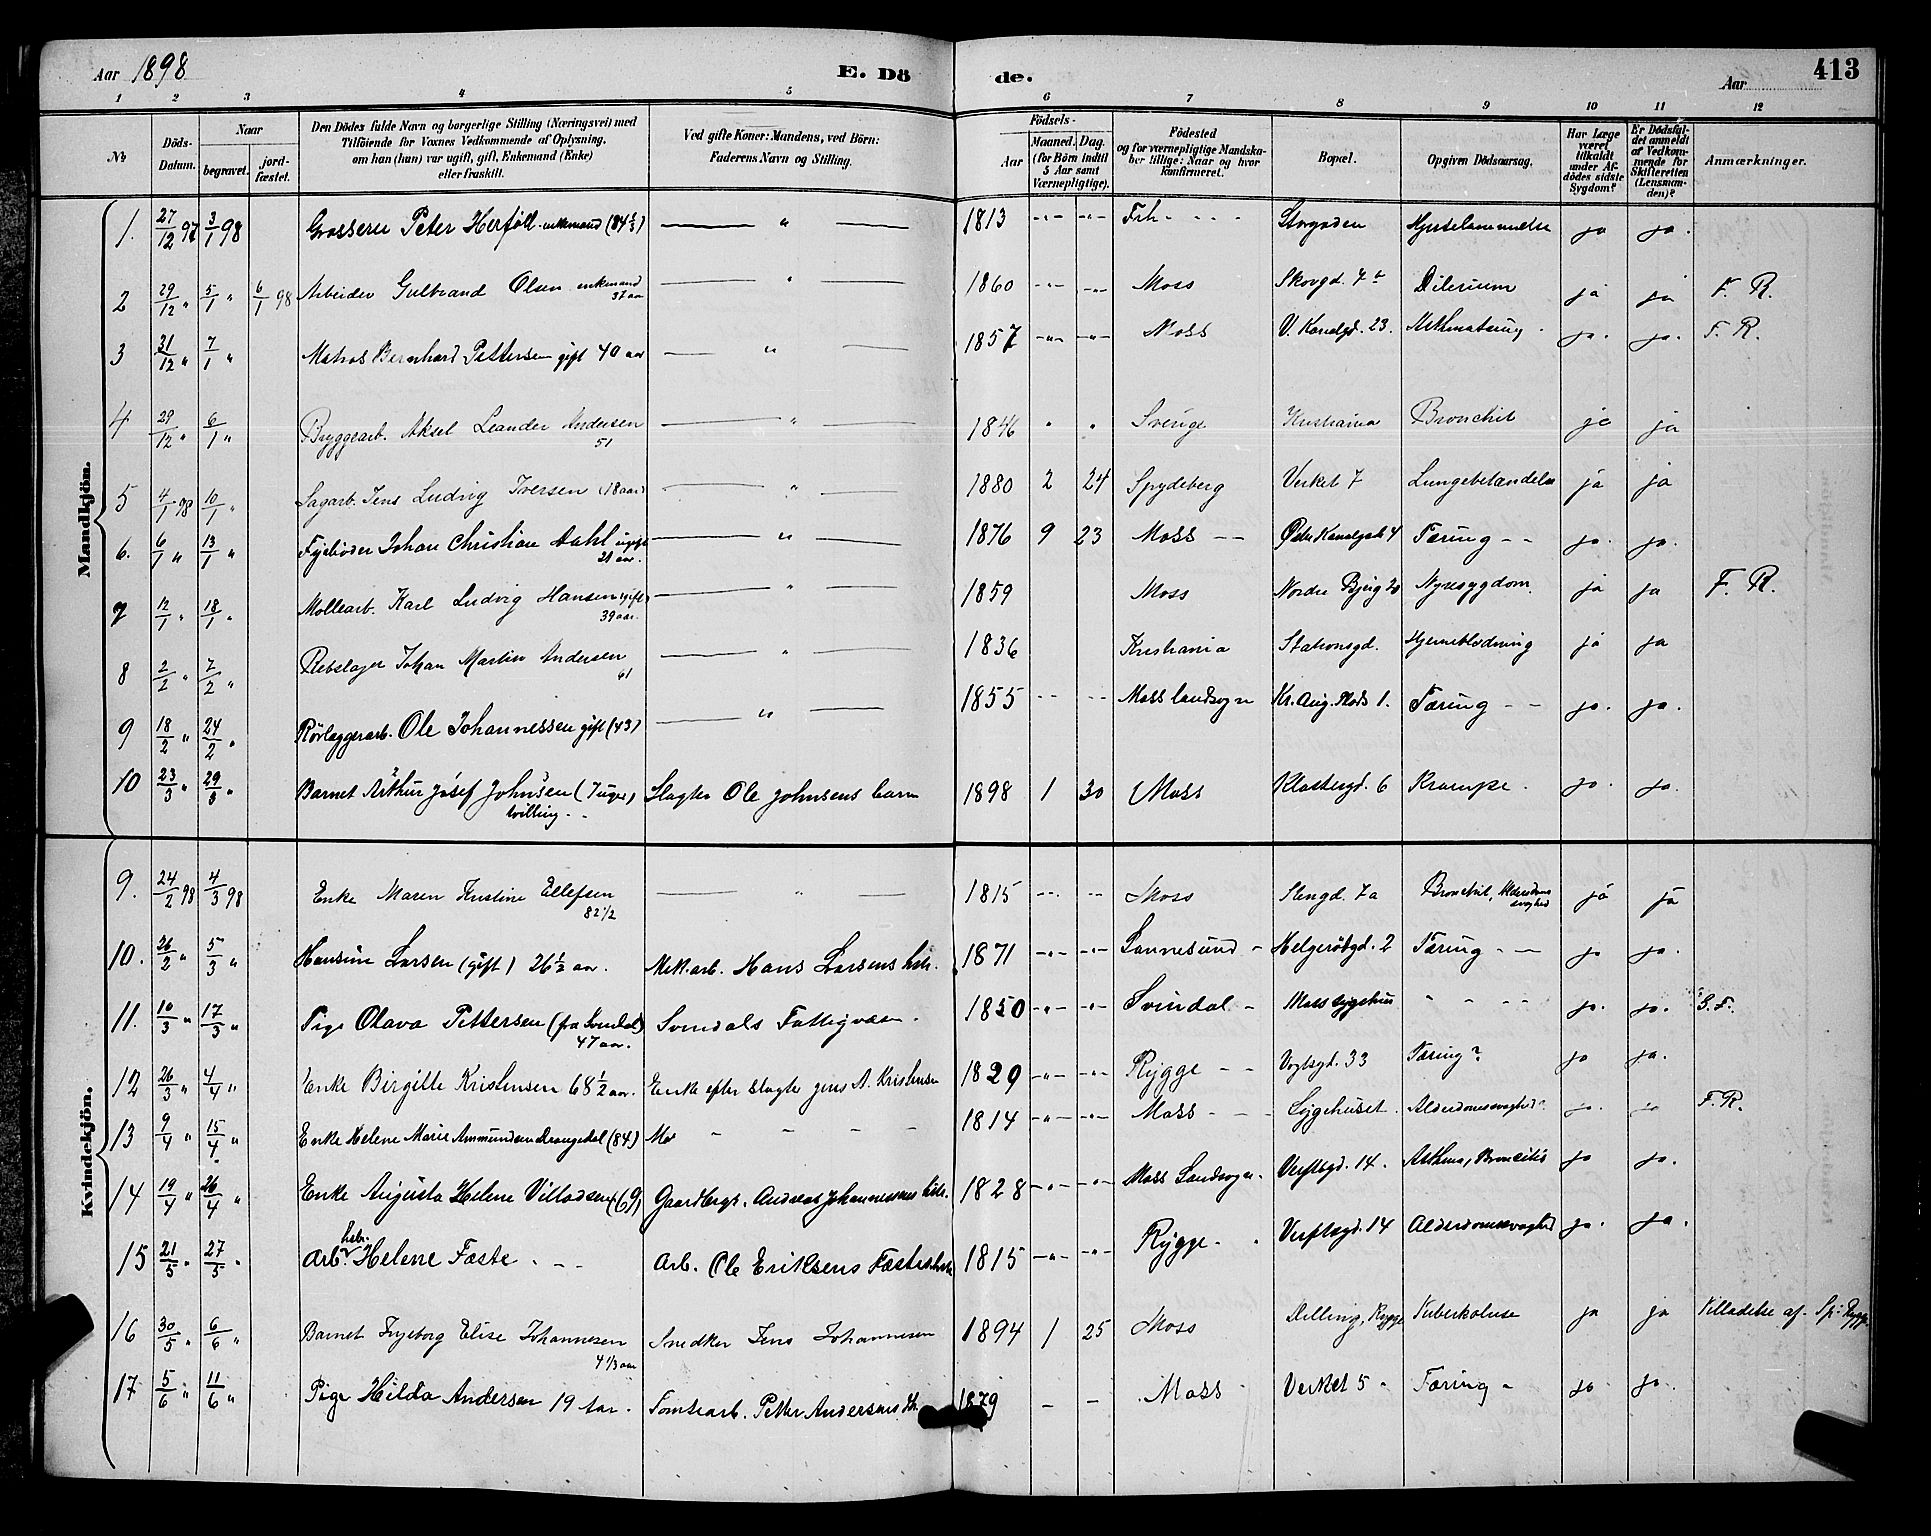 Aar 1898 E. Dö de. Aar 413
1 2 3 4 5 6 7 8 9 10 11 12
№ Döds-Datum. Naar begravet. jord-fæstet. Den Dödes fulde Navn og borgerlige Stilling (Næringsvei) med Tilföiende for Voxnes Vedkommende af Oplysning, om han (hun) var ugift, gift, Enkemand (Enke) eller fraskilt. Ved gifte Koner: Mandens, ved Börn: Faderens Navn og Stilling. Födsels- Aar Maaned. Dag. (for Börn indtil 5 Aar samt Værnepligtige). Födested og for værnepligtige Mandskaber tillige: Naar og hvor konfirmeret. Bopæl. Opgiven Dödsaarsag. Har Læge været tilkaldt under Afdödes sidste Sygdom? Er Dödsfaldet anmeldt af Vedkommende for Skifteretten (Lensmanden)? Anmærkninger.
Mandkjön.
1. 27/12 97 3/1 98 Grosserer Peter Herföll enkemand (84 1/3) — " — 1813 -"- -"- Frh - - - - Storgaden ja ja.
2 29/12 " 5/1 " 6/1 98 Arbeider Gulbrand Olsen enkemand 37 aar — " — 1860 -"- -"- Moss Skovgd. 7 Dilerium ja ja F. R.
3 31/12 " 7/1 " Matros Bernhard Pettersen gift 40 aar — " — 1857 -"- -"- Moss V. Kanalgd. 23. ja. ja. F. R.
4 29/12 " 6/1 " Bryggearb. Aksel Leander Andersen 51 — " — 1846 " " Sverige Kristiania Bronchit ja ja
5 4/1 98 10/1 " Sagarb. Jens Ludvig Iversen (18 aar) — " — 1880 2 24 Spydeberg Verket 7 Lungebetændelse ja ja
6. 6/1 " 13/1 " Fyrböder Johan Christian Dahl ugift 21 aar. — " — 1876 9 23 Moss -- Östre Kanalgade 4 Tæring -- ja. ja.
7 12/1 " 18/1 " Möllearb. Karl Ludvig Hansen (gift) 39 aar. — " — 1859 Moss Nordre Bjerg 20 Nyresygdom. ja ja F. R.
8 2/2 " 7/2 " Rebslager Johan Martin Andersen 61 — " — 1836 Kristiania Stationsgd. Hjerneblödning ja ja
9 18/2 " 24/2 " Rörlæggerarb. Ole Johannessen gift (43) — " — 1855 -- -- Moss landsogn Kr. Aug. Plads 1. Tæring -- ja. ja.
10 23/3 " 29/3 " Barnet Arthur Josef Johnsen (7 uger) tvilling. Slagter Ole Johnsens barn 1898 1 30 Moss Klostergd. 6 Krampe. ja. ja.
Kvindekjön.
9. 24/2 98 4/3 98 Enke Maren Kristine Ellefsen 82 1/2 — " — 1815 -"- -"- Moss Stengd. 7a Bronchit, Alderdomssvaghed ja ja
10. 26/2 " 5/3 " Hansine Larsen (gift) 26 1/2 aar. Mek. arb. Hans Larsens hstr. 1871 -"- -"- Sannesund - Helgerödgd. 2 Tæring - — ja ja.
11. 10/3 " 17/3 " Pige Olava Pettersen (fra Svindal) 47 aar. Svindals Fattigvæsen. 1850 -"- -"- Svindal - Moss sygehus " " " " ja. ja. S. F.
12 26/3 " 4/4 " Enke Birgitte Kristensen 68 1/2 aar. Enke efter slagter Jens A. Kristensen 1829 -"- -"- Rygge -- Vogtsgd. 33 Tæring? ja ja.
13 9/4 " 15/4 " Enke Helene Marie Ammundsen Drangedal (84) Mor - - - - 1814 -"- -"- Moss - - - Sygehuset. Alderdomssvaghed. ja. ja F. R.
14 19/4 " 26/4 " Enke Augusta Helene Villadsen (69) Gaardbrgr. Andreas Johannessens hstr. 1828 -"- -"- Moss Landsogn. Verftsgd. 14. Asthma, Broncitis ja ja.
15 21/5 " 27/5 " Arb. hstr. Helene Fæste. - - Arb. Ole Eriksens Fæstes hstr. 1815 -"- -"- Rygge - . Verftsgd. 14 Alderdomssvaghed ja. ja.
16 30/5 " 6/6 " Barnet Ingeborg Elise Johannesen 4 1/3 aar Snedker Jens Johannesen 1894 1 25 Moss Dilling, Rygge Tuberkolose ja ja Tilladelse af Sp: Rygge
17 5/6 " 11/6 " Pige Hilda Andersen 19 Aar. Tomtearb. Petter Andersens dt. 1879 - - Moss Verket 5 - Tæring - ja ja.